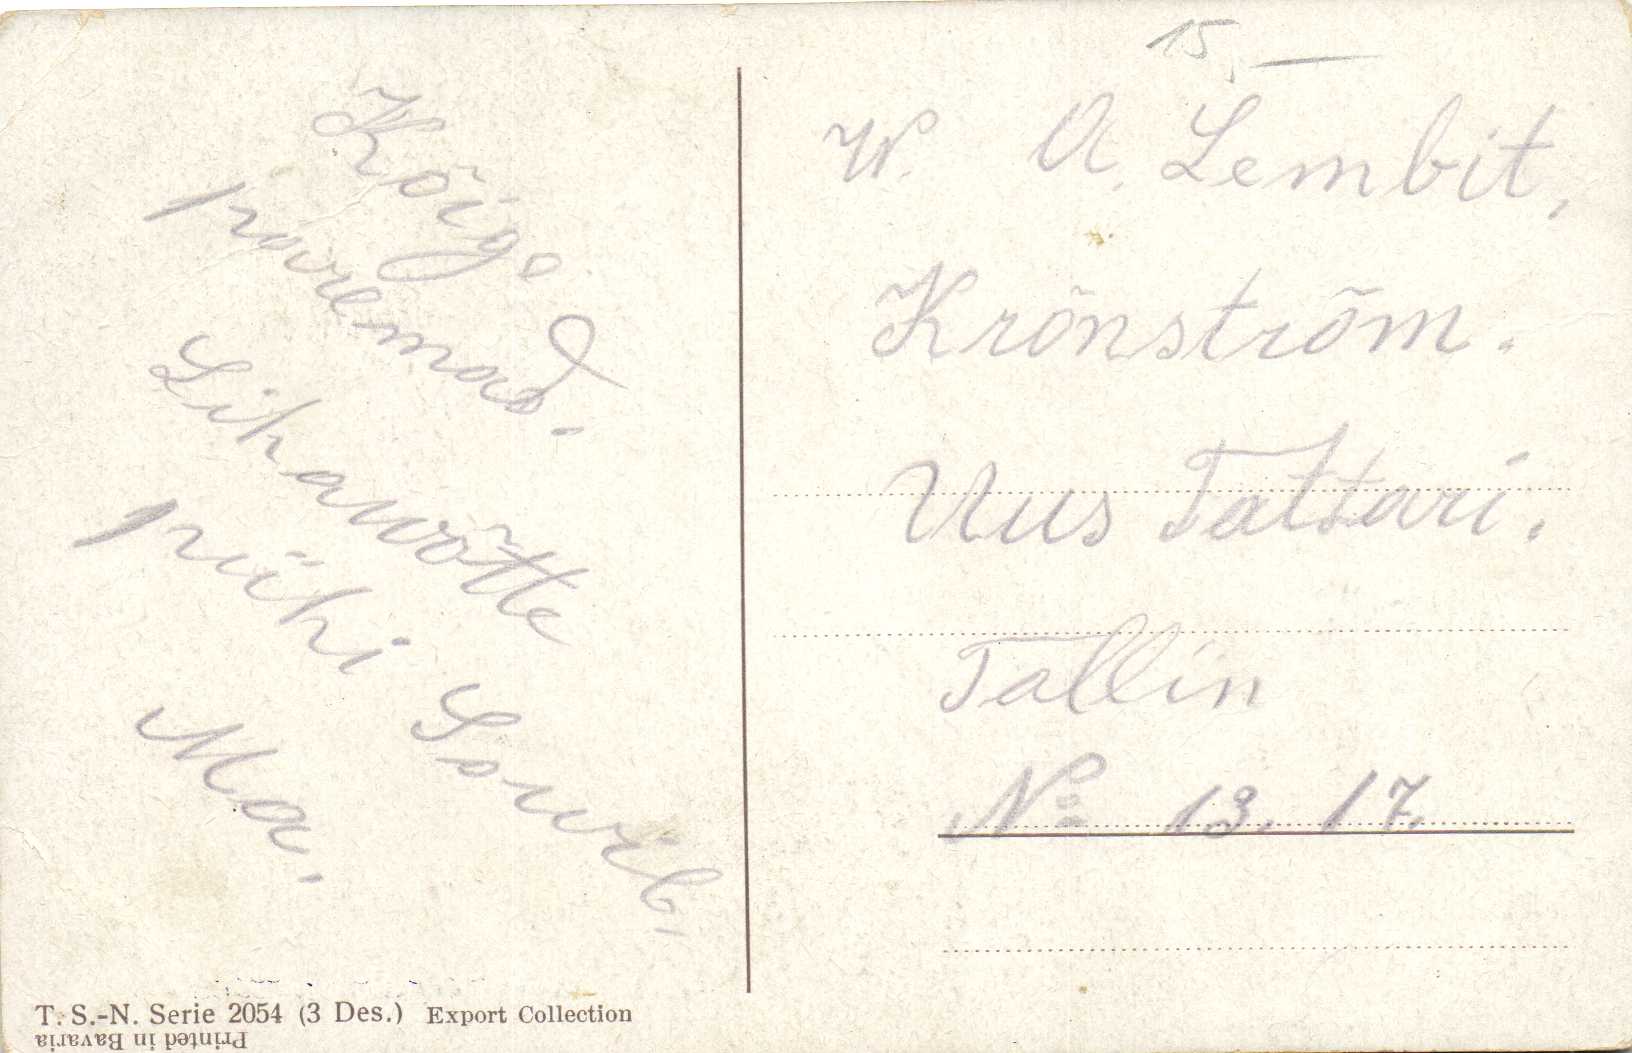 Kõige
paremad.
Lihawõtte
pühi Soowib,
Ma.
15,—
W. A. Lembit,
Krõnström.
Uus Tattari.
Tallin
No 13. 17.
T. S.-N. Serie 2054 (3 Des.) Export Collection
Printed in Bavaria